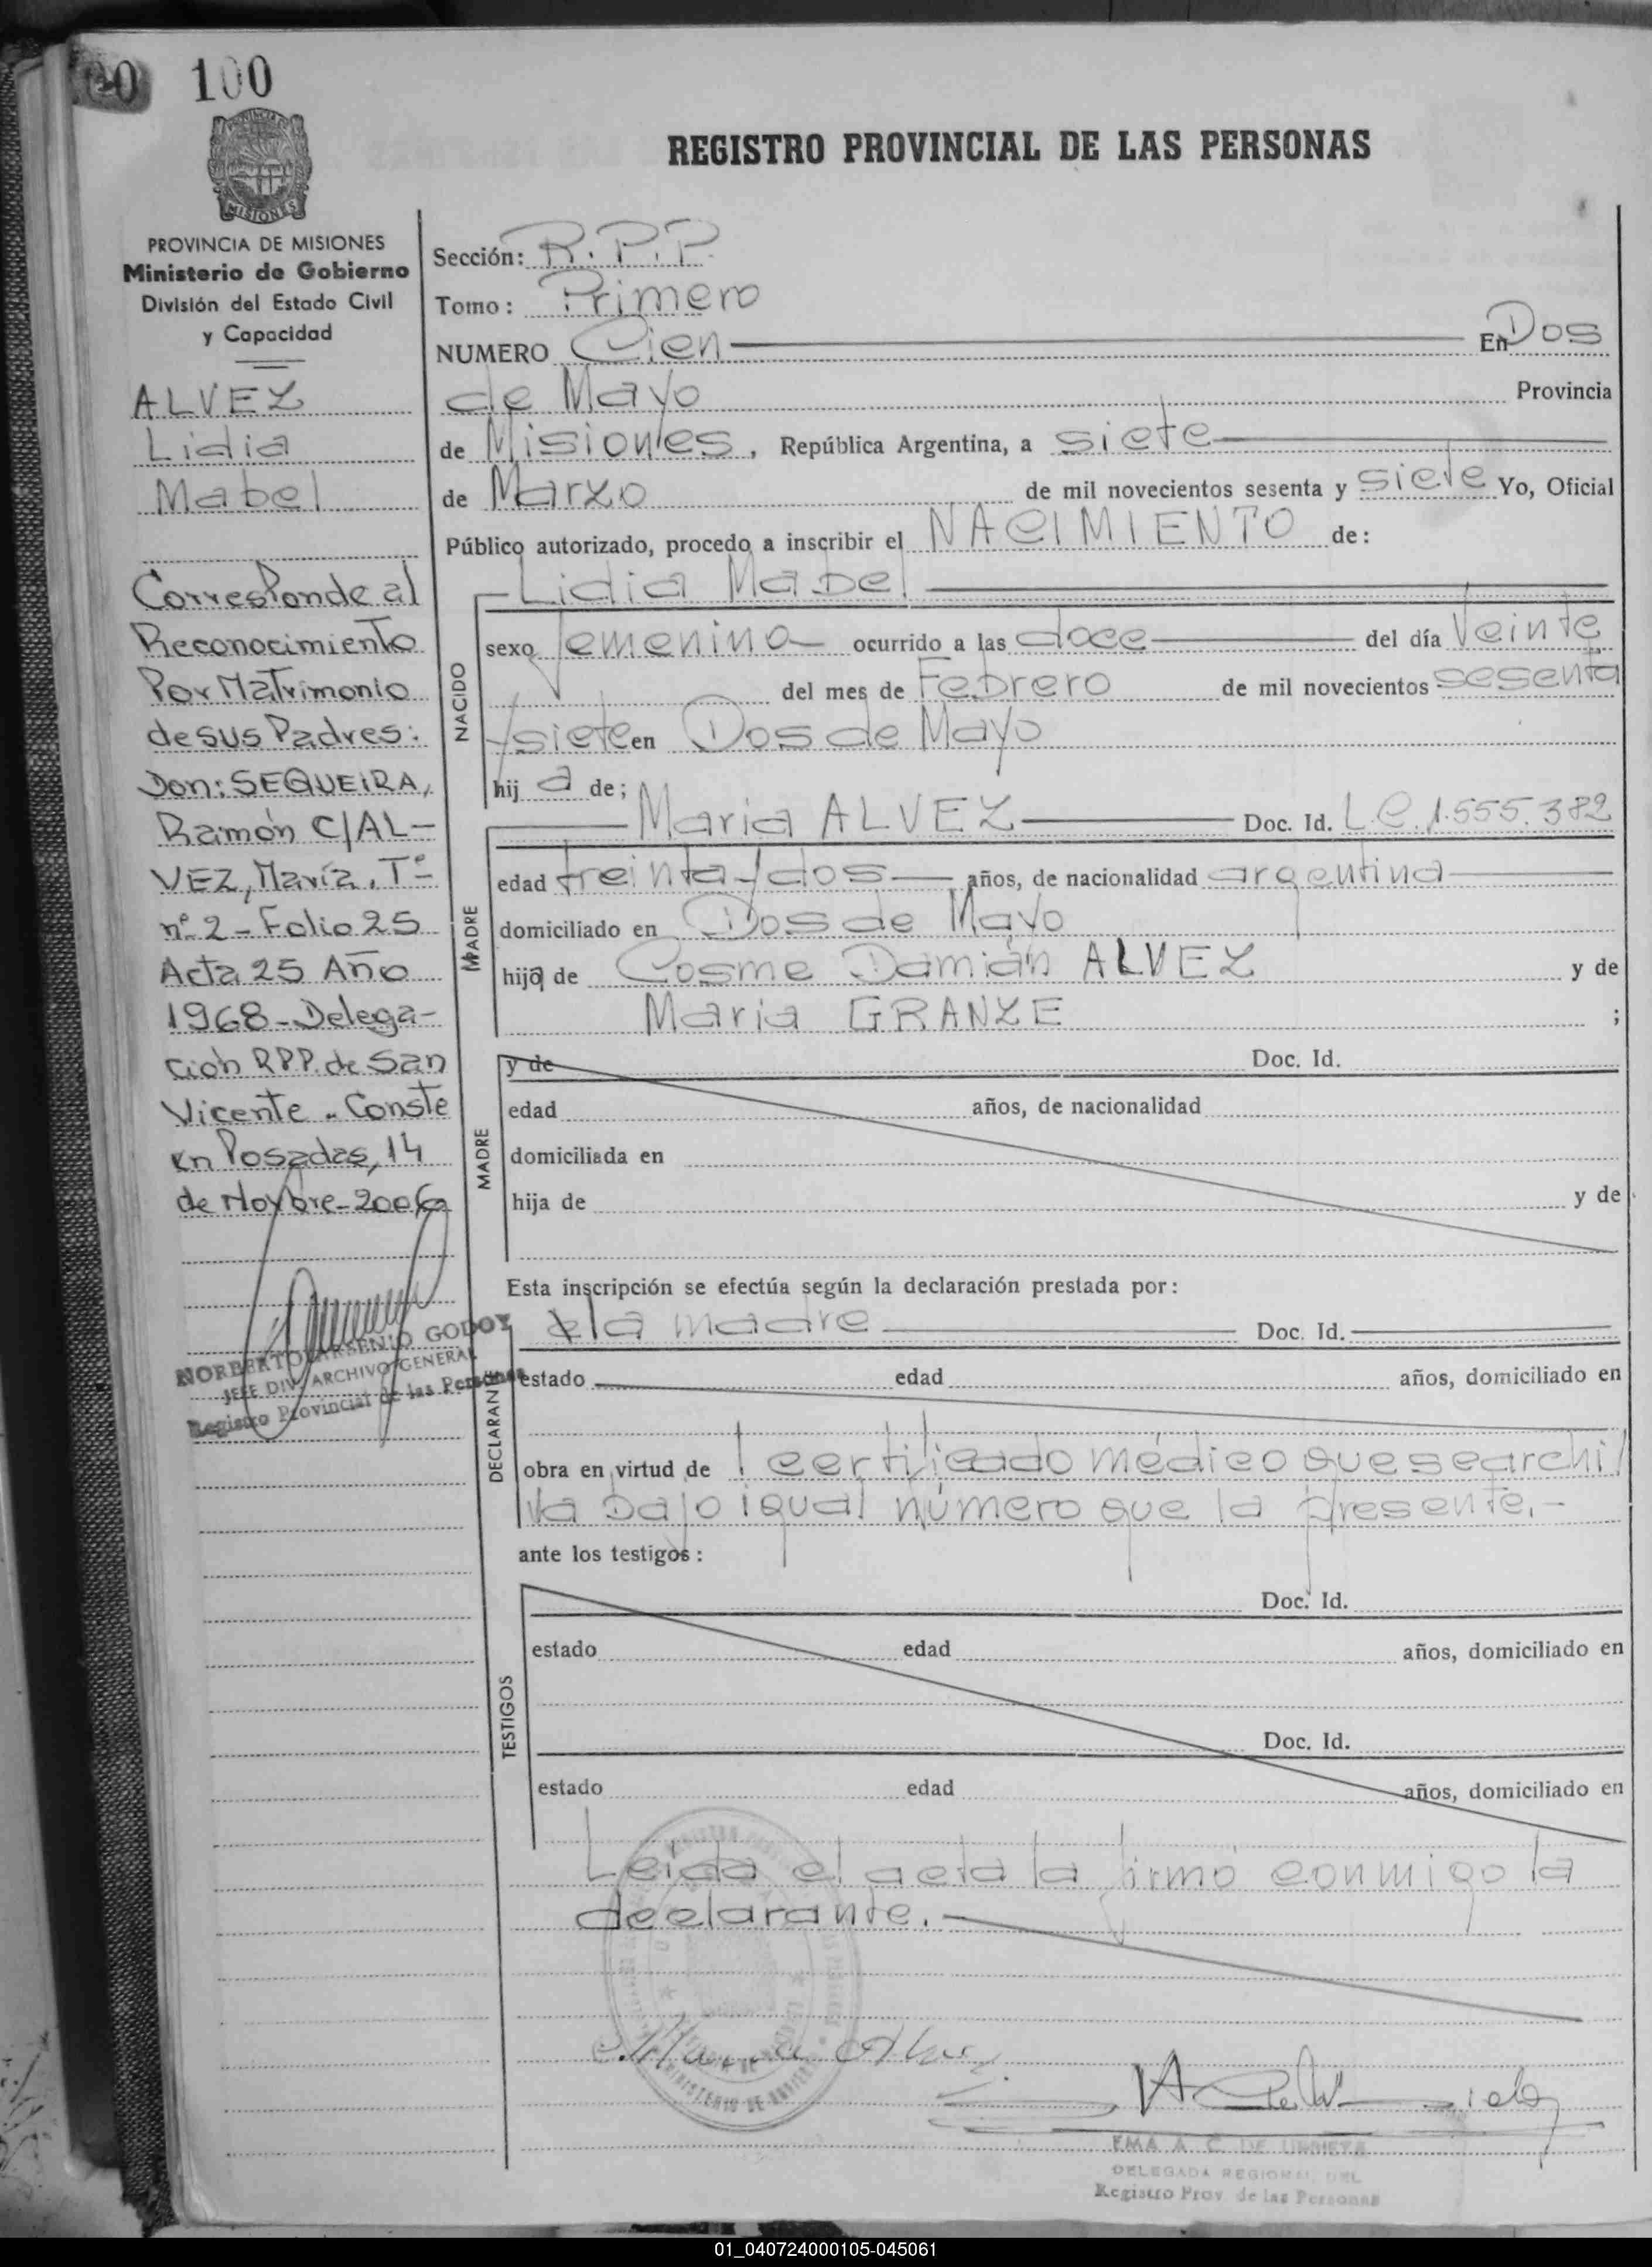 100
REGISTRO PROVINCIAL DE LAS PERSONAS
PROVINCIA DE MISIONES
Ministerio de Gobierno
División del Estado Civil
y Capacidad
ALVEZ
Lidia
Mabel
Corresponde al
Reconocimiento
Por Matrimonio
de sus Padres:
Don: SEQUEIRA,
Ramón C/AL-
VEZ, María, Tº
nº 2 - Folio 25
Acta 25 Año
1968 - Delega-
ción RPP. de San
Vicente - Conste
en Posadas, 14
de Novbre - 2006
NORBERTO ARSENIO GODOY
JEFE DIV. ARCHIVO GENERAL
Registro Provincial de las Personas
Sección: R.P.P.
Tomo: Primero
NUMERO Cien En Dos
de Mayo Provincia
de Misiones, República Argentina, a siete
de Marzo de mil novecientos sesenta y siete Yo, Oficial
Público autorizado, procedo a inscribir el NACIMIENTO de:
Lidia Mabel
NACIDO
sexo femenino ocurrido a las doce del día Veinte
del mes de Febrero de mil novecientos sesenta
y siete en Dos de Mayo
hij a de;
María ALVEZ Doc. Id. L.C. 1.555.382
MADRE
edad treinta y dos años, de nacionalidad argentina
domiciliado en Dos de Mayo
hija de Cosme Damián ALVEZ y de
María GRANZE ;
y de Doc. Id.
MADRE
edad años, de nacionalidad
domiciliada en
hija de y de
Esta inscripción se efectúa según la declaración prestada por:
la madre Doc. Id.
DECLARANTE
estado edad años, domiciliado en
obra en virtud de l certificado médico que se archi
va bajo igual número que la presente.-
ante los testigos:
Doc. Id.
TESTIGOS
estado edad años, domiciliado en
Doc. Id.
estado edad años, domiciliado en
Leída el acta la firmó conmigo la
declarante.
María Alvez
EMA A. C. DE URRIETA
DELEGADA REGIONAL DEL
Registro Prov. de las Personas
01_040724000105-045061